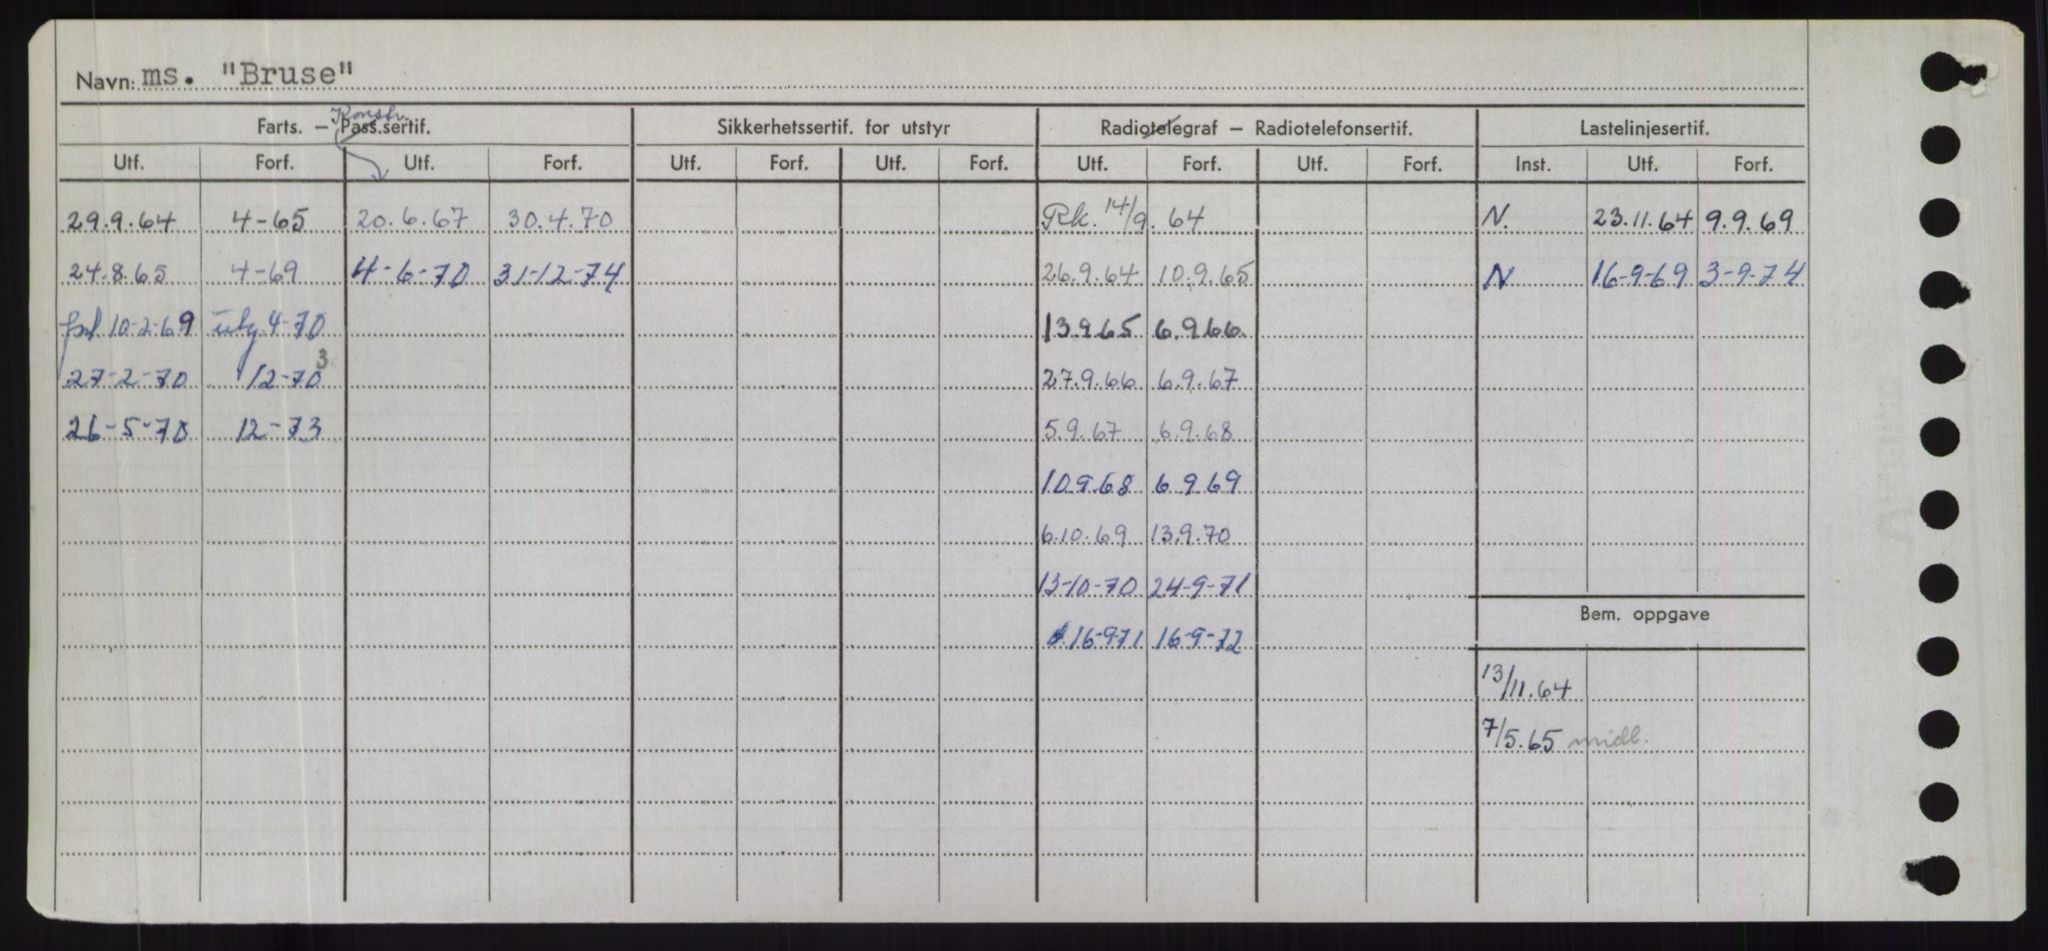 Navn: ms. "Bruse"
Konstr.
Farts. – Pass.sertif. Sikkerhetssertif. for utstyr Radiotelegraf – Radiotelefonsertif. Lastelinjesertif.
Utf. Forf. Utf. Forf. Utf. Forf. Utf. Forf. Utf. Forf. Utf. Forf. Inst. Utf. Forf.
29.9.64 4-65 20.6.67 30.4.70 Rk. 14/9.64 N. 23.11.64 9.9.69
24.8.65 4-69 4-6-70 31-12-74 26.9.64 10.9.65 N 16-9-69 3-9-74
10-2-69 4-70 13.9.65 6.9.66.
27-2-70 12-70 3 27.9.66 6.9.67
26-5-70 12-73 5.9.67 6.9.68
10.9.68 6.9.69
6.10.69 13.9.70
13-10-70 24-9-71
Bem. oppgave
16-9-71 16-9-72
13/11.64
7/5.65 midl.